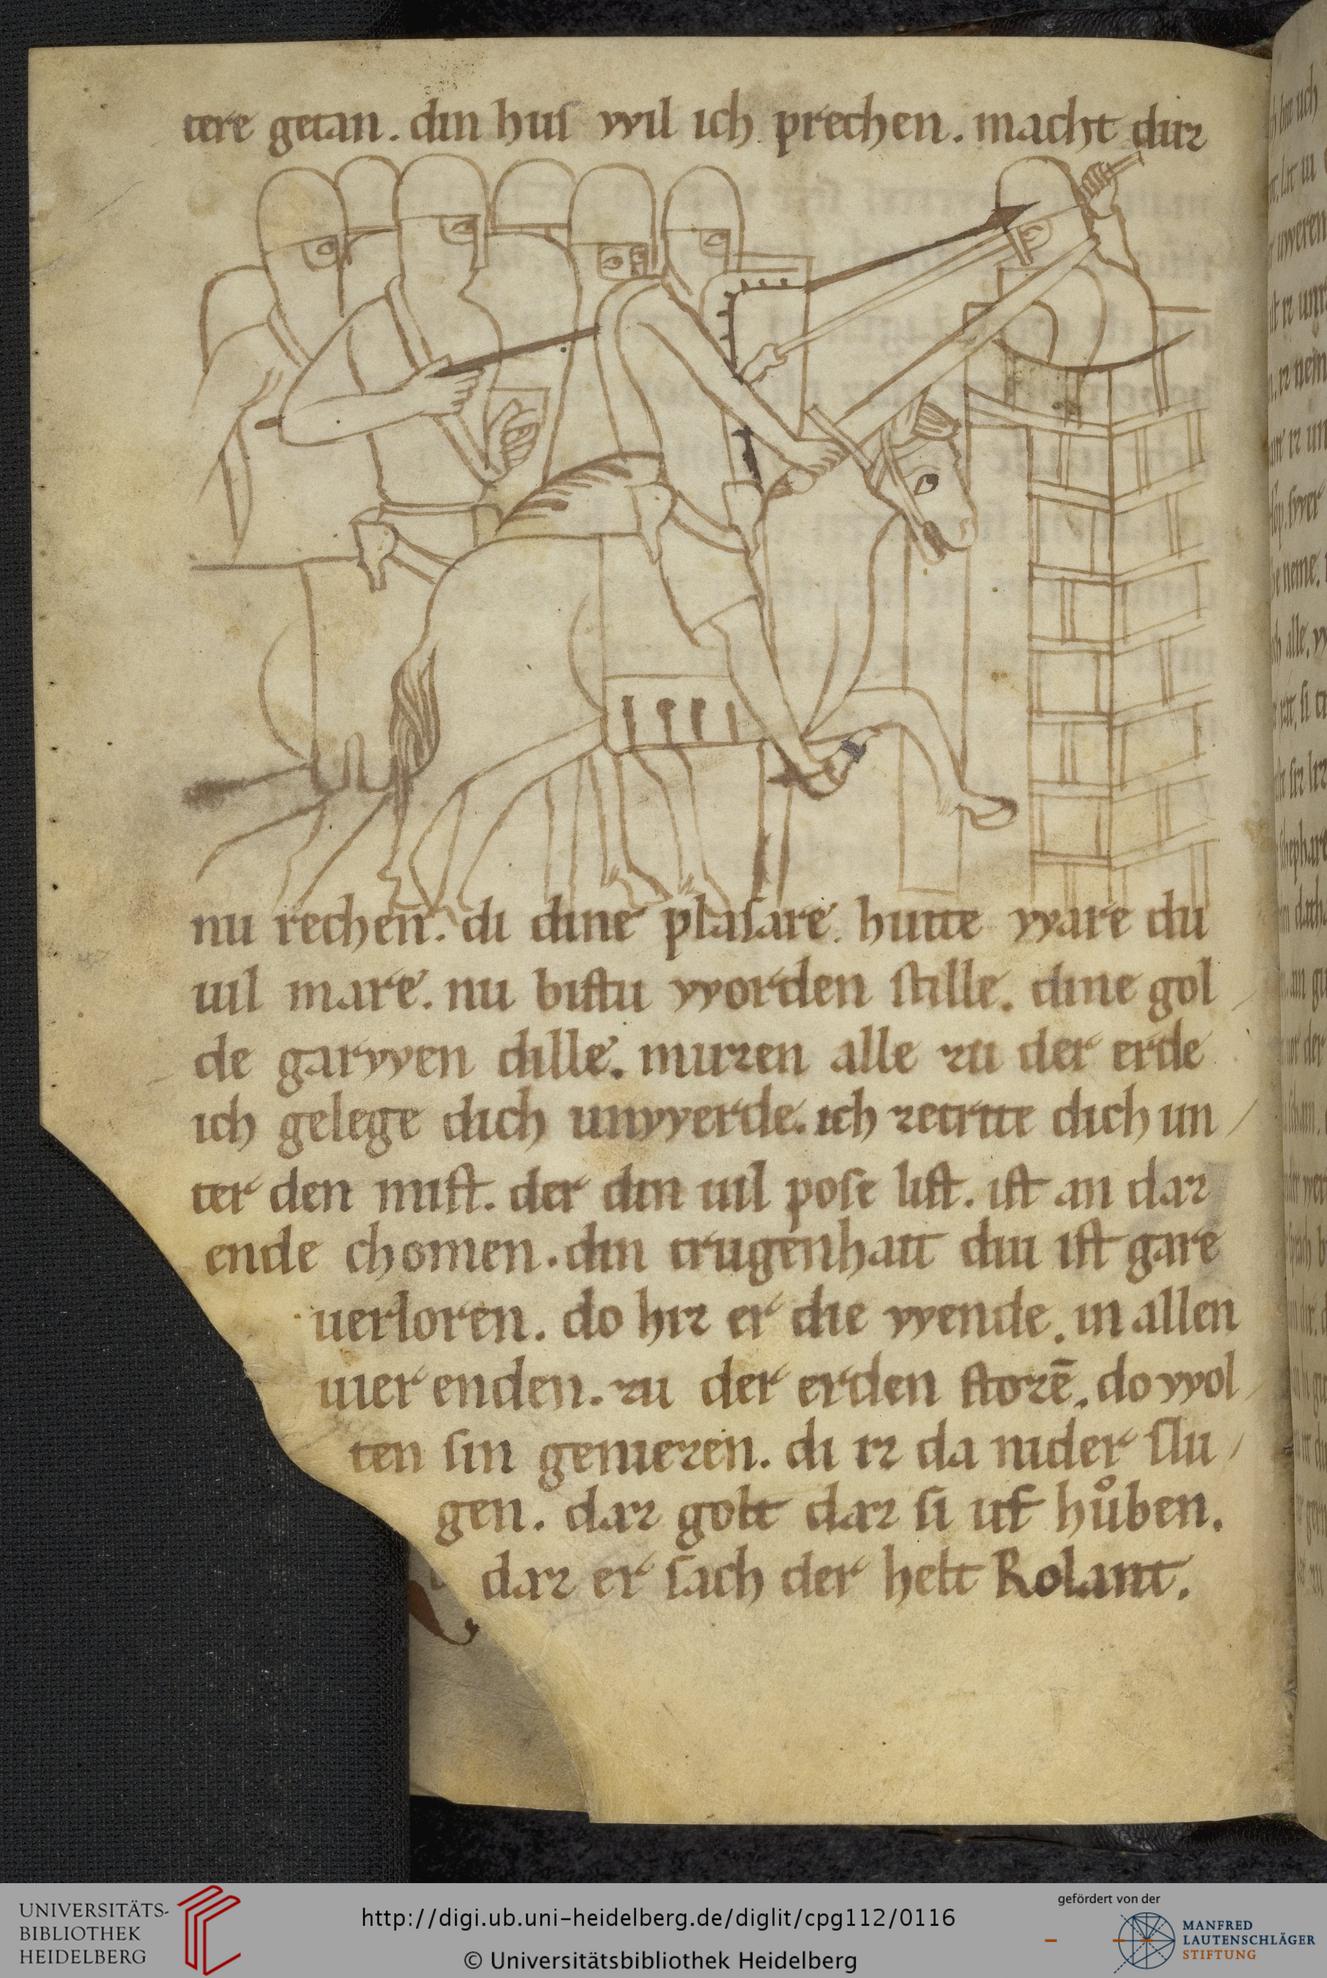 tere getan. din huſ wil ich prechen. macht duz
nu rechen. di dine plaſare. hutte ware du
uil mare. nu biſtu worden ſtille. dine gol
de garwen dille. muzen alle zu der erde
ich gelege dich unwerde. ich zetrite dich un
ter den miſt. der din uil poſe liſt. iſt an daz
ende chomen. din trugenhait diu iſt gare
uerloren. do hiz er die wende. in allen
uier enden. zu der erden ſtozē. do wol
ten ſin geniezen. di iz da nider ſlu
gen. daz golt daz ſi uf hůben.
daz er ſach der helt Rolant.
UNIVERSITÄTS-
BIBLIOTHEK
HEIDELBERG
http://digi.ub.uni-heidelberg.de/diglit/cpg112/0116
© Universitätsbibliothek Heidelberg
gefördert von der
MANFRED
LAUTENSCHLÄGER
STIFTUNG